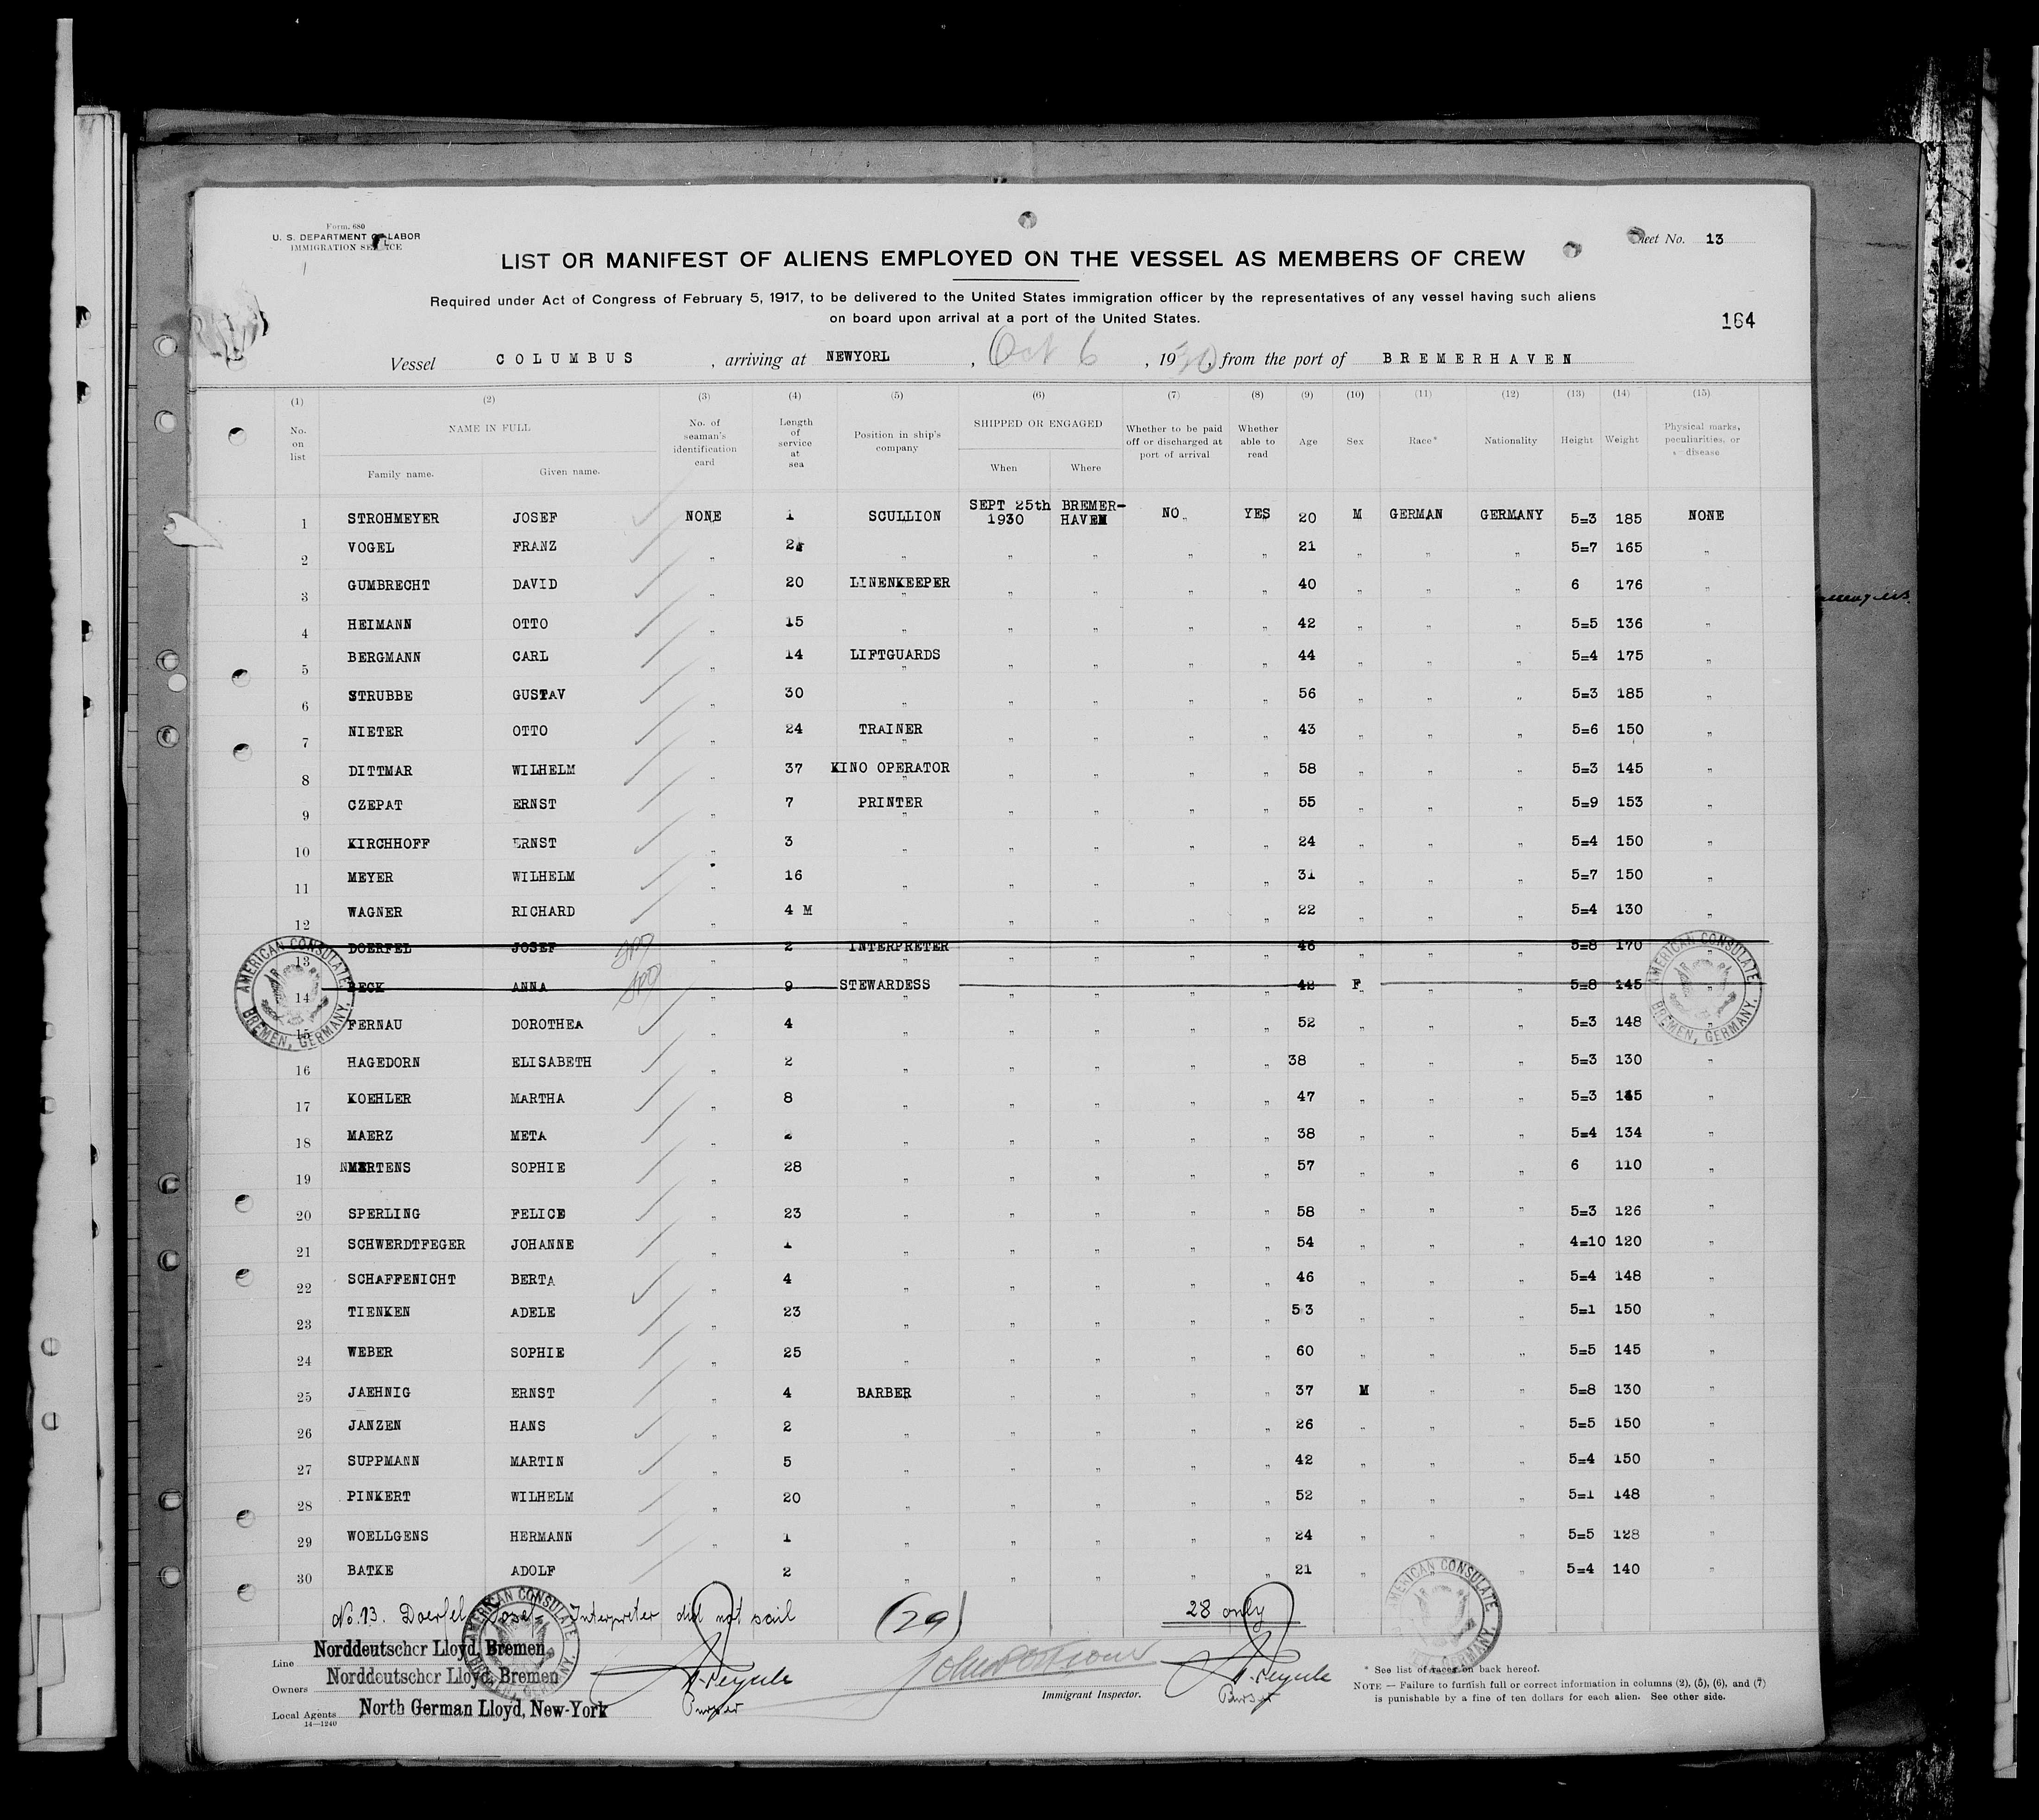 Form. 680
U. S. DEPARTMENT OF LABOR
IMMIGRATION SERVICE
Sheet No. 13
LIST OR MANIFEST OF ALIENS EMPLOYED ON THE VESSEL AS MEMBERS OF CREW
Required under Act of Congress of February 5, 1917, to be delivered to the United States immigration officer by the representatives of any vessel having such aliens
on board upon arrival at a port of the United States.
164
Vessel COLUMBUS , arriving at NEWYORL , Oct 6 , 1930, from the port of BREMERHAVEN
(1) (2) (3) (4) (5) (6) (7) (8) (9) (10) (11) (12) (13) (14) (15)
No. on list NAME IN FULL Family name. Given name. No. of seaman's identification card Length of service at sea Position in ship's company SHIPPED OR ENGAGED When Where Whether to be paid off or discharged at port of arrival Whether able to read Age Sex Race* Nationality Height Weight Physical marks, peculiarities, or disease
1 STROHMEYER JOSEF NONE 1 SCULLION SEPT 25th 1930 BREMER-HAVEN NO YES 20 M GERMAN GERMANY 5=3 185 NONE
2 VOGEL FRANZ " " " " " " 21 " " " 5=7 165 "
3 GUMBRECHT DAVID " 20 LINENKEEPER " " " " 40 " " " 6 176 "
4 HEIMANN OTTO " 15 " " " " " 42 " " " 5=5 136 "
5 BERGMANN CARL " 14 LIFTGUARDS " " " " 44 " " " 5=4 175 "
6 STRUBBE GUSTAV " 30 " " " " " 56 " " " 5=3 185 "
7 NIETER OTTO " 24 TRAINER " " " " 43 " " " 5=6 150 "
8 DITTMAR WILHELM " 37 KINO OPERATOR " " " " 58 " " " 5=3 145 "
9 CZEPAT ERNST " 7 PRINTER " " " " 55 " " " 5=9 153 "
10 KIRCHHOFF ERNST " 3 " " " " " 24 " " " 5=4 150 "
11 MEYER WILHELM " 16 " " " " " 31 " " " 5=7 150 "
12 WAGNER RICHARD " 4 M " " " " " 22 " " " 5=4 130 "
13 DOERFEL JOSEF " 2 INTERPRETER " " " " 46 " " " 5=8 170 "
14 BECK ANNA " 9 STEWARDESS " " " " 42 F " " 5=8 145 "
15 FERNAU DOROTHEA " 4 " " " " " 52 " " " 5=3 148 "
16 HAGEDORN ELISABETH " 2 " " " " " 38 " " " 5=3 130 "
17 KOEHLER MARTHA " 8 " " " " " 47 " " " 5=3 "
18 MAERZ META " 2 " " " " " 38 " " " 5=4 134 "
19 MERTENS SOPHIE " 28 " " " " " 57 " " " 6 110 "
20 SPERLING FELICE " 23 " " " " " 58 " " " 5=3 126 "
21 SCHWERDTFEGER JOHANNE " 1 " " " " " 54 " " " 4=10 120 "
22 SCHAFFENICHT BERTA " 4 " " " " " 46 " " " 5=4 148 "
23 TIENKEN ADELE " 23 " " " " " 53 " " " 5=1 150 "
24 WEBER SOPHIE " 25 " " " " " 60 " " " 5=5 145 "
25 JAEHNIG ERNST " 4 BARBER " " " " 37 M " " 5=8 130 "
26 JANZEN HANS " 2 " " " " " 26 " " " 5=5 150 "
27 SUPPMANN MARTIN " 5 " " " " " 42 " " " 5=4 150 "
28 PINKERT WILHELM " 20 " " " " " 52 " " " 5=1 148 "
29 WOELLGENS HERMANN " 1 " " " " " 24 " " " 5=5 128 "
30 BATKE ADOLF " 2 " " " " " 21 " " " 5=4 140 "
AMERICAN CONSULATE BREMEN, GERMANY.
AMERICAN CONSULATE BREMEN, GERMANY.
No. 13. Doerfel, Josef, Interpreter did not sail (29) 28 only
AMERICAN CONSULATE BREMEN, GERMANY.
AMERICAN CONSULATE GERMANY.
Line Norddeutscher Lloyd, Bremen
Owners Norddeutscher Lloyd, Bremen
Local Agents North German Lloyd, New-York
14—1240
Purser
Immigrant Inspector.
Purser
* See list of races on back hereof.
NOTE — Failure to furnish full or correct information in columns (2), (5), (6), and (7)
is punishable by a fine of ten dollars for each alien. See other side.